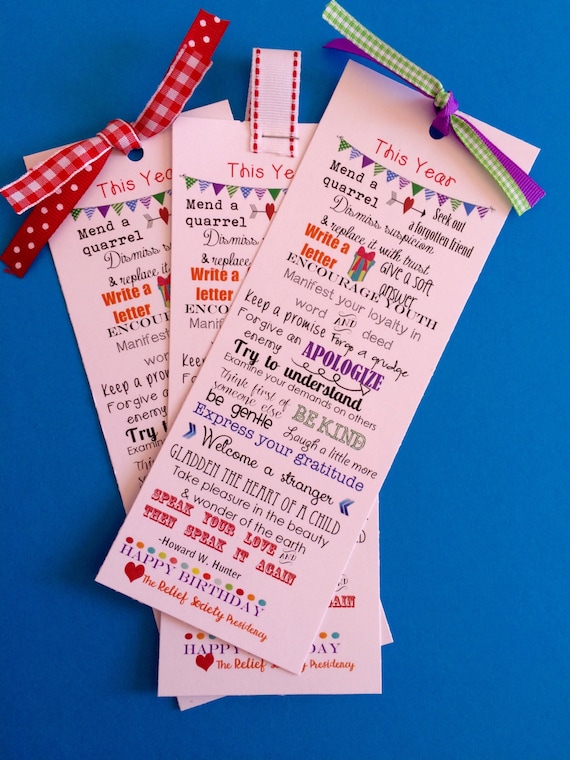 This Year
Mend a
quarrel
Dismiss suspicion
& replace it with trust
Seek out
a forgotten friend
Write a
letter
Give a soft
answer
ENCOURAGE YOUTH
Manifest your loyalty in
word AND deed
Keep a promise Forge a grudge
Forgive an
enemy
APOLOGIZE
Try to understand
Examine your demands on others
Think first of
someone else
BE KIND
be gentle
Laugh a little more
Express your gratitude
Welcome a stranger
GLADDEN THE HEART OF A CHILD
Take pleasure in the beauty
& wonder of the earth
SPEAK YOUR LOVE AND
THEN SPEAK IT AGAIN
-Howard W. Hunter
HAPPY BIRTHDAY
The Relief Society Presidency
This Year
Mend a
quarrel
Dismiss
& replace it
Write a
letter
Manifest
word
Keep a promise
Forgive an
enemy
Try to
This Year
Mend a
quarrel
Dismiss
& replace
letter
AGAIN
The Relief Society Presidency